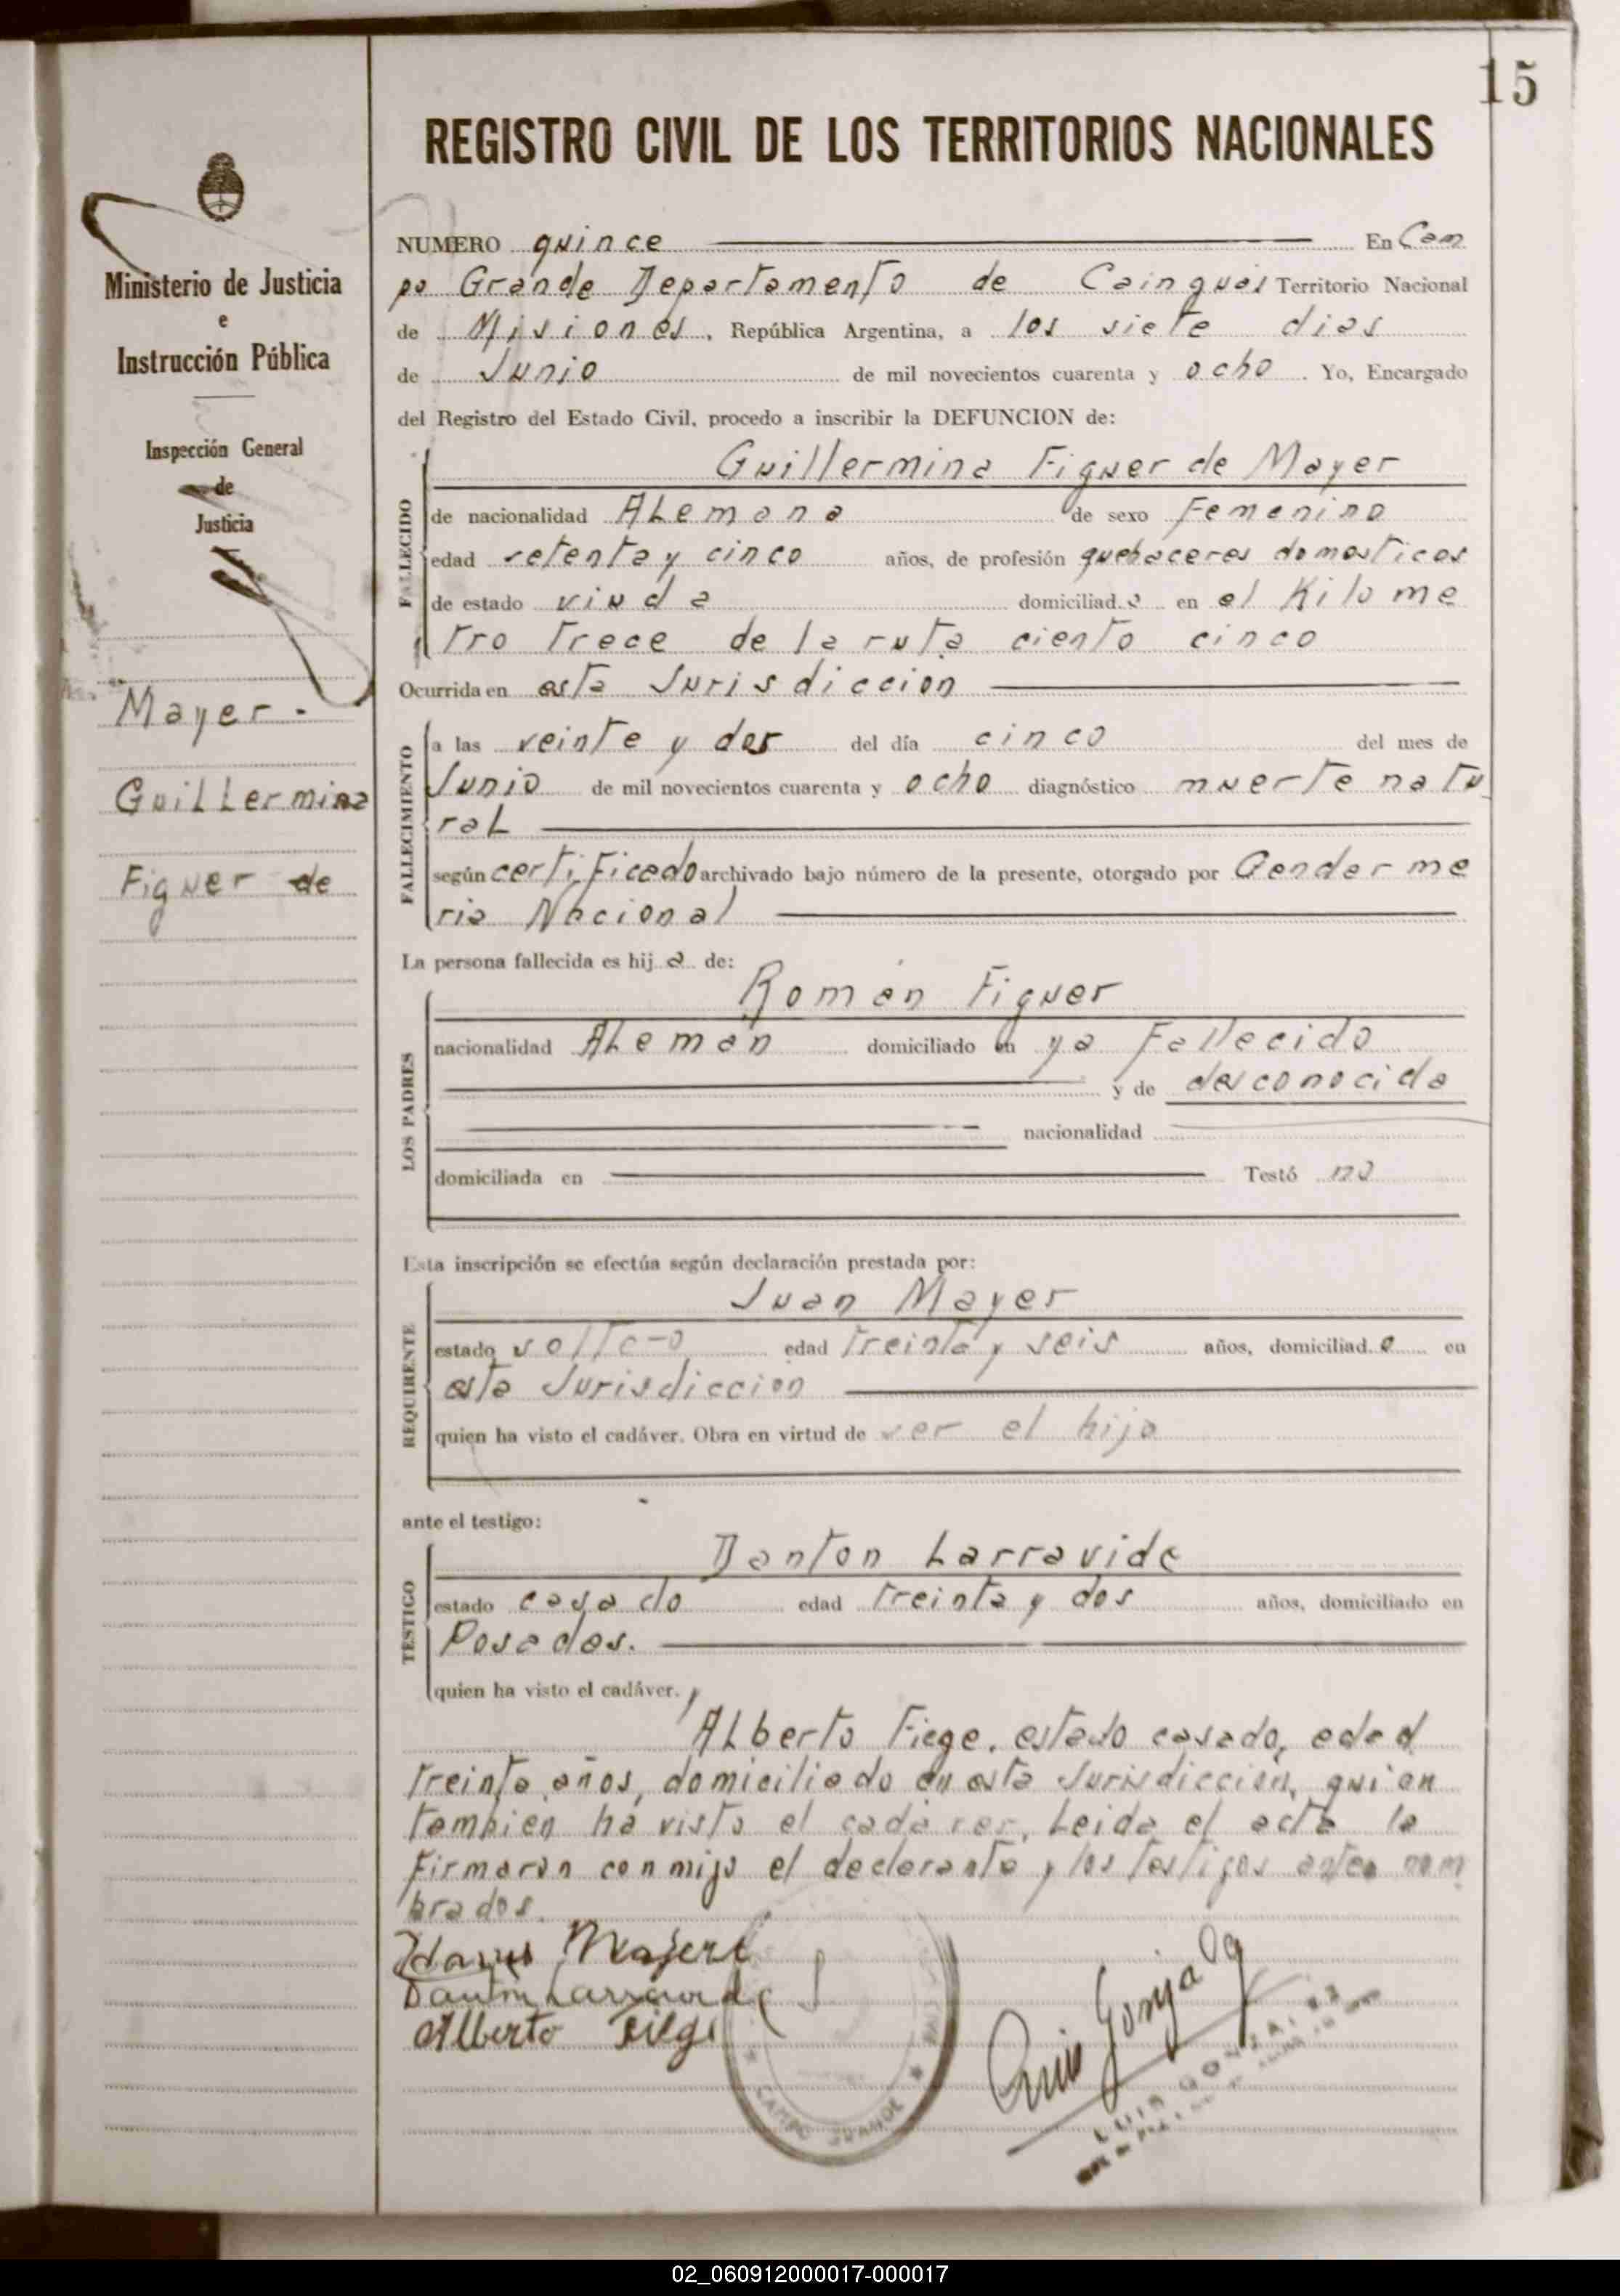 15
REGISTRO CIVIL DE LOS TERRITORIOS NACIONALES
Ministerio de Justicia
e
Instrucción Pública
Inspección General
de
Justicia
Mayer.
Guillermina
Figuer de
NUMERO quince En Cam
po Grande Departamento de Cainguás Territorio Nacional
de Misiones, República Argentina, a los siete dias
de Junio de mil novecientos cuarenta y ocho. Yo, Encargado
del Registro del Estado Civil, procedo a inscribir la DEFUNCION de:
FALLECIDO
Guillermina Figuer de Mayer
de nacionalidad Alemana de sexo Femenino
edad setenta y cinco años, de profesión quehaceres domesticos
de estado viuda domiciliada en el Kilome
tro trece de la ruta ciento cinco
Ocurrida en esta Jurisdiccion
FALLECIMIENTO
a las veinte y dos del día cinco del mes de
Junio de mil novecientos cuarenta y ocho diagnóstico muerte natu
ral
según certificado archivado bajo número de la presente, otorgado por Genderme
ria Nacional
La persona fallecida es hija de:
LOS PADRES
Román Figuer
nacionalidad Alemán domiciliado en ya Fallecido
y de desconocida
nacionalidad
domiciliada en Testó no
Esta inscripción se efectúa según declaración prestada por:
REQUIRENTE
Juan Mayer
estado soltero edad treinta y seis años, domiciliado en
esta Jurisdiccion
quien ha visto el cadáver. Obra en virtud de ser el hijo
ante el testigo:
TESTIGO
Danton Larravide
estado casado edad treinta y dos años, domiciliado en
Posadas.
quien ha visto el cadáver. y
Alberto Fiege. estado casado, edad
treinta años, domiciliado en esta Jurisdiccion, quien
tambien ha visto el cadáver. Leida el acta la
firmaron conmigo el declarante y los testigos antes nom
brados.
Alberto
CAMPO GRANDE
LUIS GONZALEZ
02_060912000017-000017